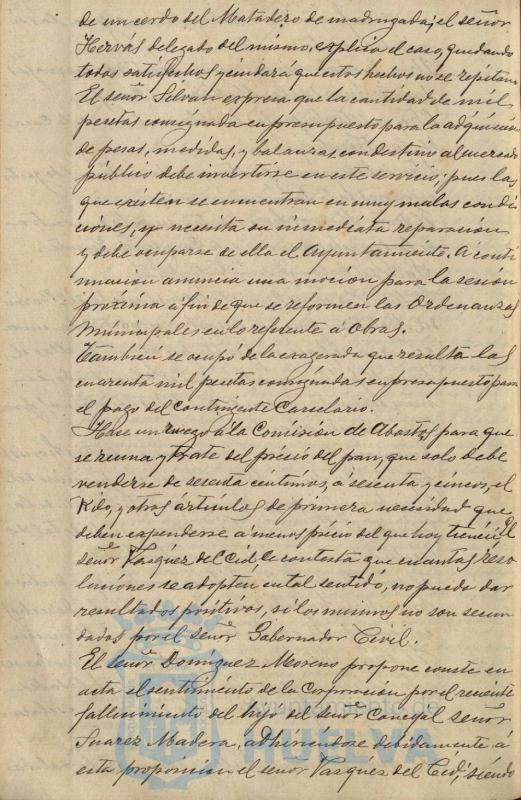 de un cerdo del Matadero de madrugada; el señor
Hervás delegado del mismo, explica el caso, quedando
todos satisfechos y cuidará que estos hechos no se repitan.
El señor Silván expresa que la cantidad de mil
pesetas consignada en presupuesto para la adquisición
de pesas, medidas, y balanzas, con destino al mercado
público debe invertirse en este servicio; pues las
que existen se encuentran en muy malas condi
ciones, y necesita su inmediata reparación
y debe ocuparse de ella el Ayuntamiento. A conti
nuación anuncia una moción para la sesión
próxima a fin de que se reformen las Ordenanzas
Municipales en lo referente á obras.
También se ocupó de lo exagerada que resulta las
cuarenta mil pesetas consignadas en presupuesto para
el pago del Contingente Carcelario.
Hace un ruego á la Comisión de Abastos para que
se reuna y trate del precio del pan, que solo debe
venderse de sesenta céntimos, á sesenta y cinco, el
Kilo, y otros artículos de primera necesidad que
deben expenderse a menos précio del que hoy tienen; El
señor Vazquez del Cid, le contesta que cuantas reso
luciones se adopten en tal sentido, no puede dar
resultados positivos, si los mismos no son secun
dados por el señor Gobernador Civil.
El señor Dominguez Moreno propone conste en
acta el sentimiento de la Corporación por el reciente
fallecimiento del hijo del señor Concejal señor
Suarez Madera, adhiriendose debidamente á
esta proposición el señor Vazqués del Cid, siendo
Ayuntamiento de
HUELVA